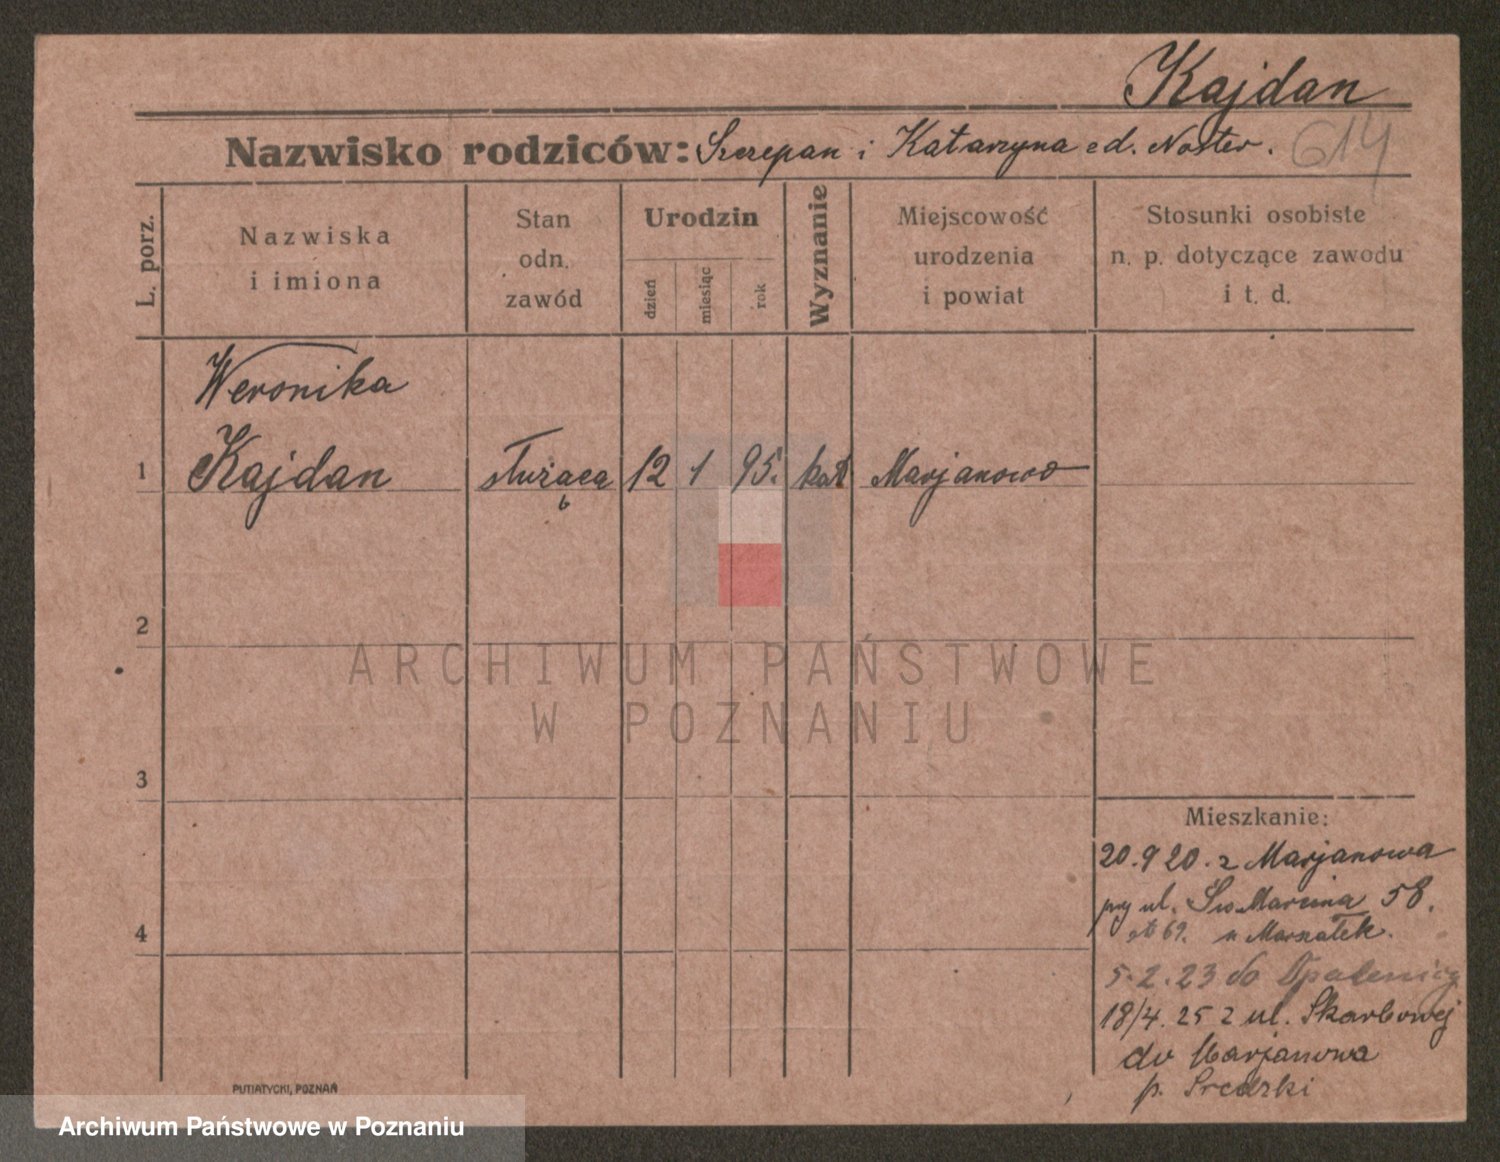 Kajdan
Nazwisko rodziców: Szczepan i Katarzyna Noster. 614
L. porz.
Nazwiska
i imiona
Stan
odn.
zawód
Urodzin
dzień
miesiąc
rok
Wyznanie
Miejscowość
urodzenia
i powiat
Stosunki osobiste
n. p. dotyczące zawodu
i t. d.
Weronika
1 Kajdan służąca 12 1 95. kat Marjanowo
2
ARCHIWUM PAŃSTWOWE
W POZNANIU
3
Mieszkanie:
20.9 20. z Marjanowa
przy ul. Św Marcina 58.
69. u Marszałek.
4
5.2.23 do Opalenicy
18/4. 25 z ul. Skarbowej
do Marjanowa
p. Sredzki
PUTIATYCKI, POZNAŃ
Archiwum Państwowe w Poznaniu